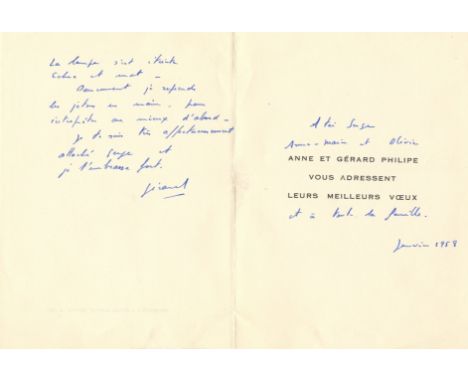 La lampe s'est éteinte
Echec et mat -
Doucement je reprends
les pions en main, pour
interpréter au mieux d'abord -
Je te suis très affectueusement
attaché Serge et
je t'embrasse fort.
Gérard
A toi Serge
Anne-Marie et Olivier
ANNE ET GÉRARD PHILIPE
VOUS ADRESSENT
LEURS MEILLEURS VŒUX
et à toute la famille.
Janvier 1958